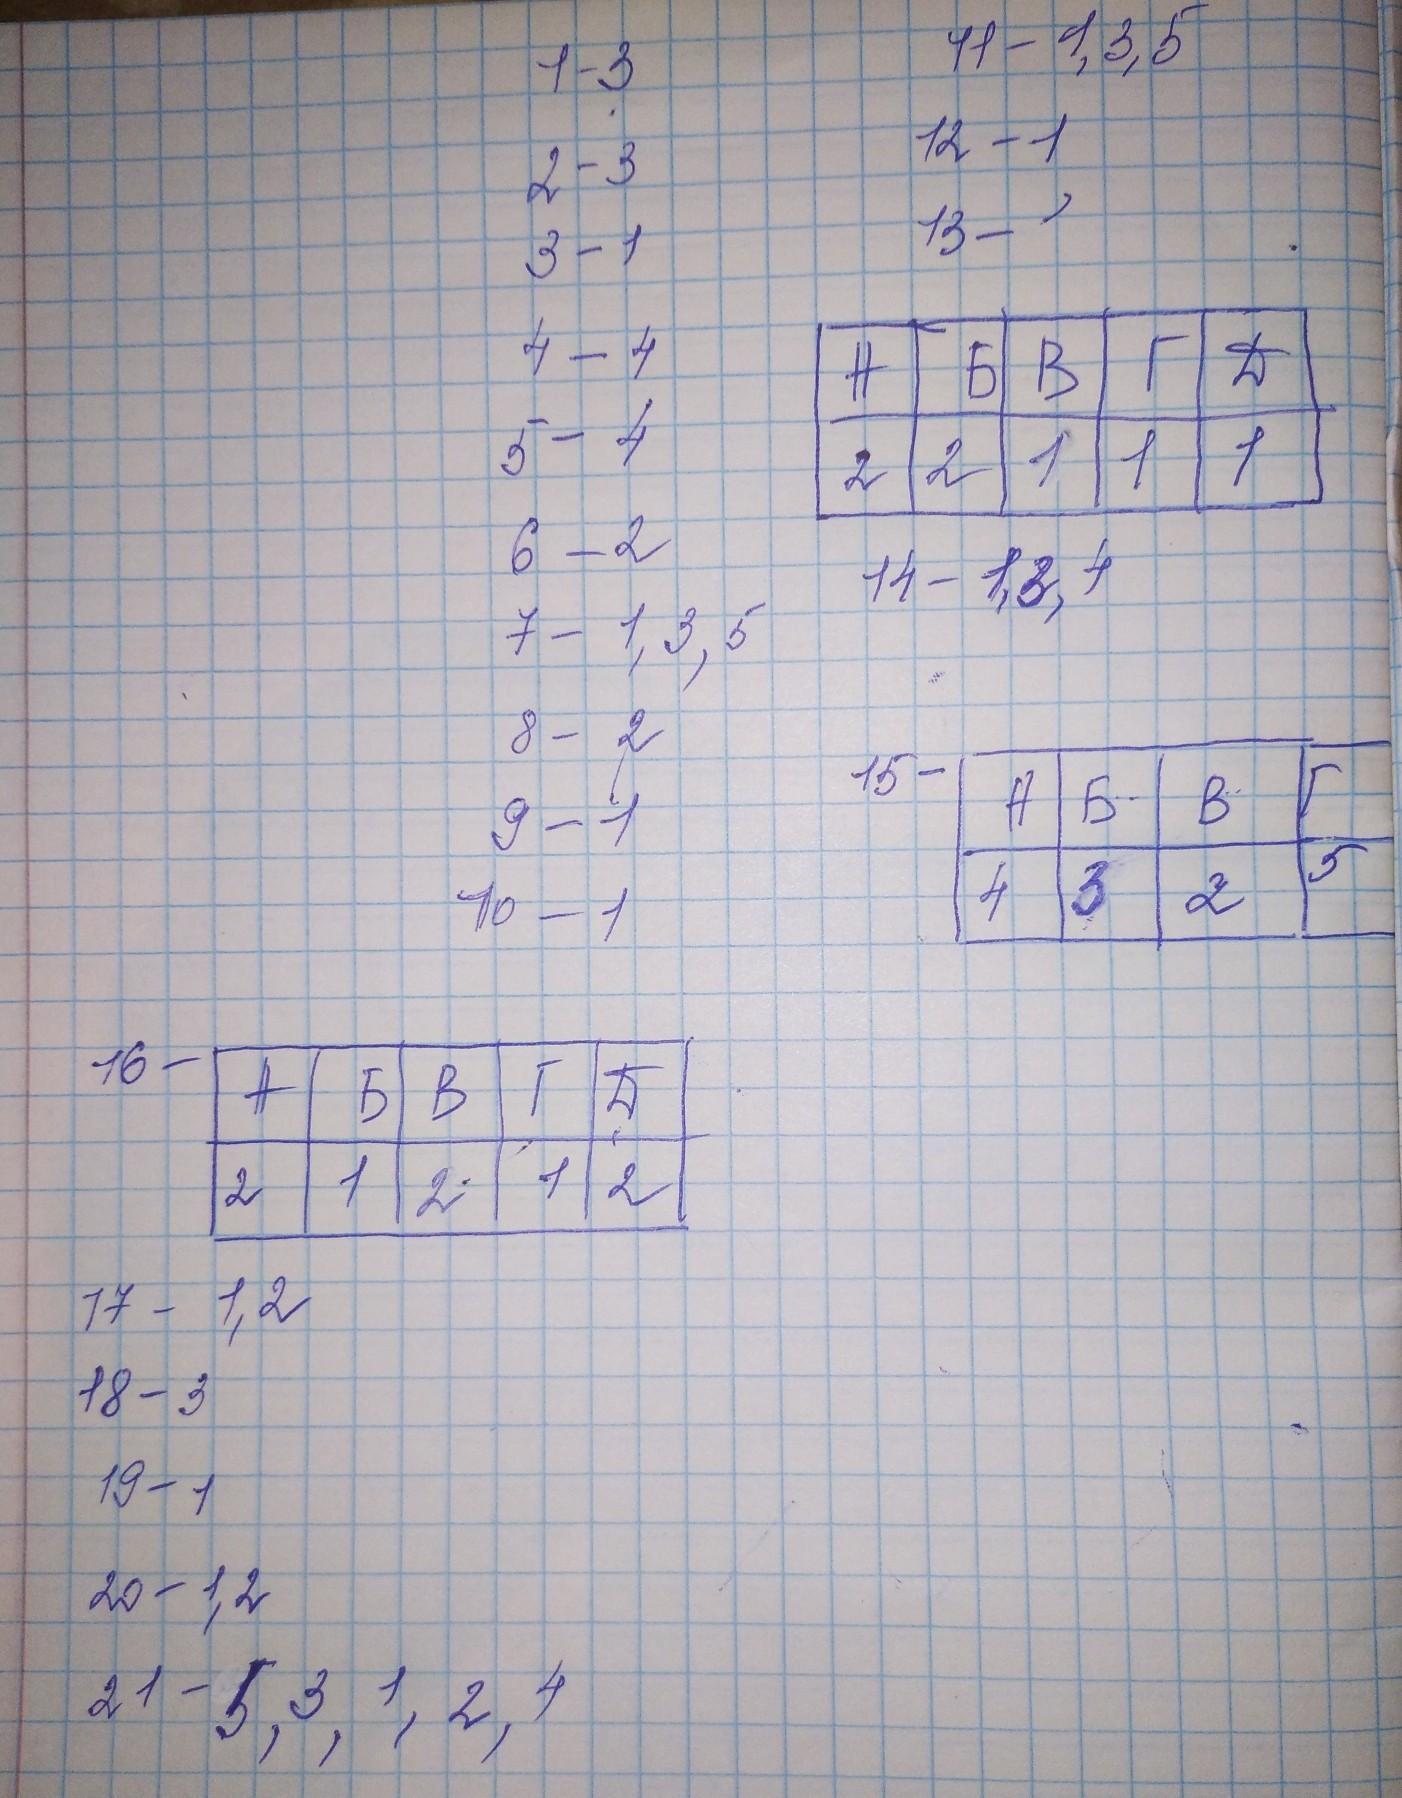 1-3
2-3
3-1
4-4
5-4
6-2
7-1,3,5
8-2
9-1
10-1
11-1,3,5
12-1
13-
А Б В Г Д
2 2 1 1 1
14-1,3,4
15-
А Б В Г
4 3 2 5
16-
А Б В Г Д
2 1 2 1 2
17-1,2
18-3
19-1
20-1,2
21-5,3,1,2,4